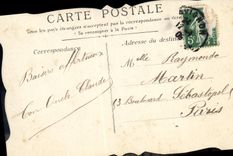 CARTE POSTALE
Tous les pays étrangers n'acceptent pas la correspondance au recto
(Se renseigner à la Poste)
Correspondance
Adresse du destinataire
Baisers affectueux
Ton Oncle Claude
Mlle Raymonde
Martin
13 Boulevard Sébastopol
Paris